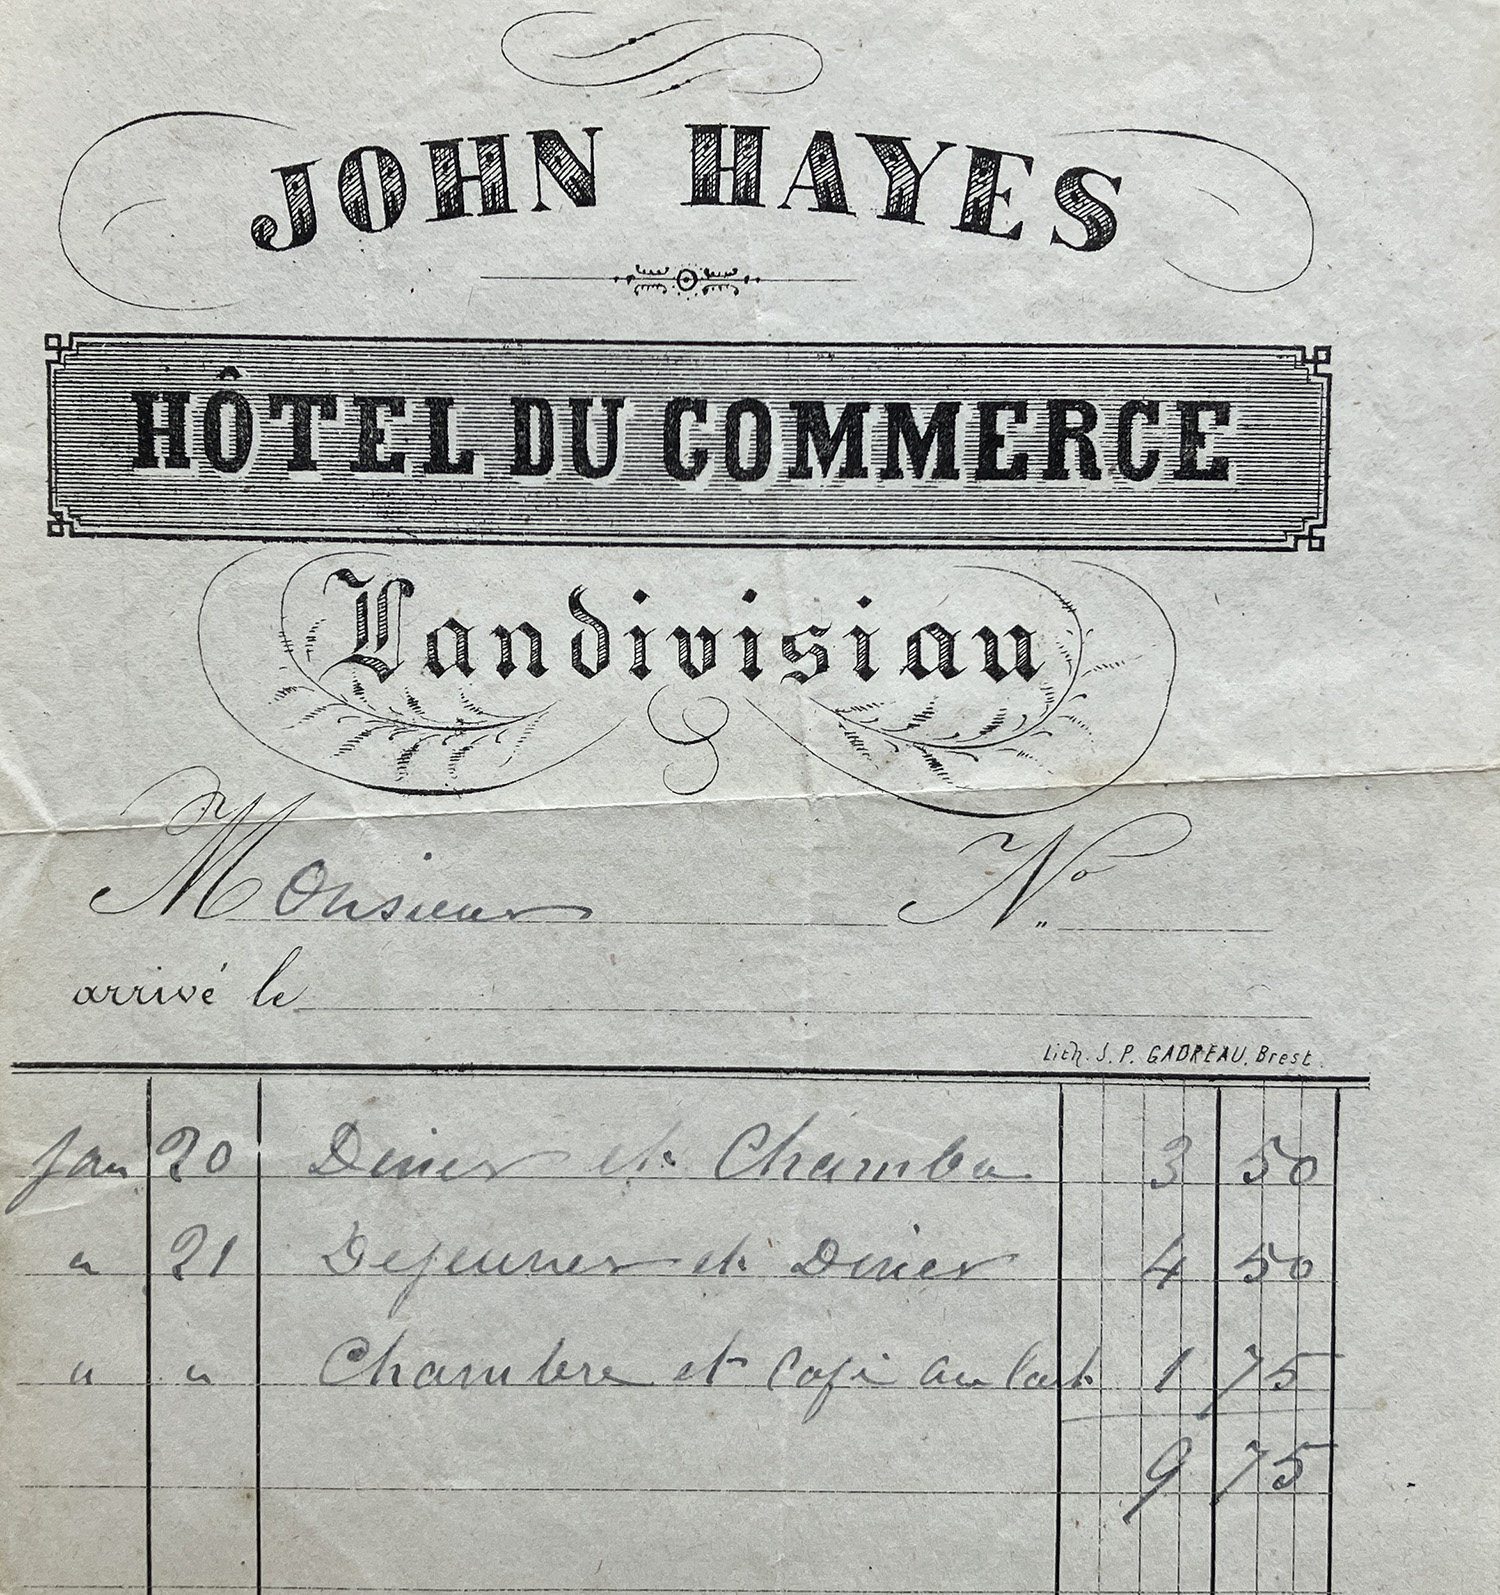 JOHN HAYES
HÔTEL DU COMMERCE
Landivisiau
Monsieur No
arrivé le
Lith. J. P. GADREAU, Brest.
Jan 20 Diner et Chambre 3 50
" 21 Dejeuner et Diner 4 50
" " Chambre et Café au lait 1 75
9 75